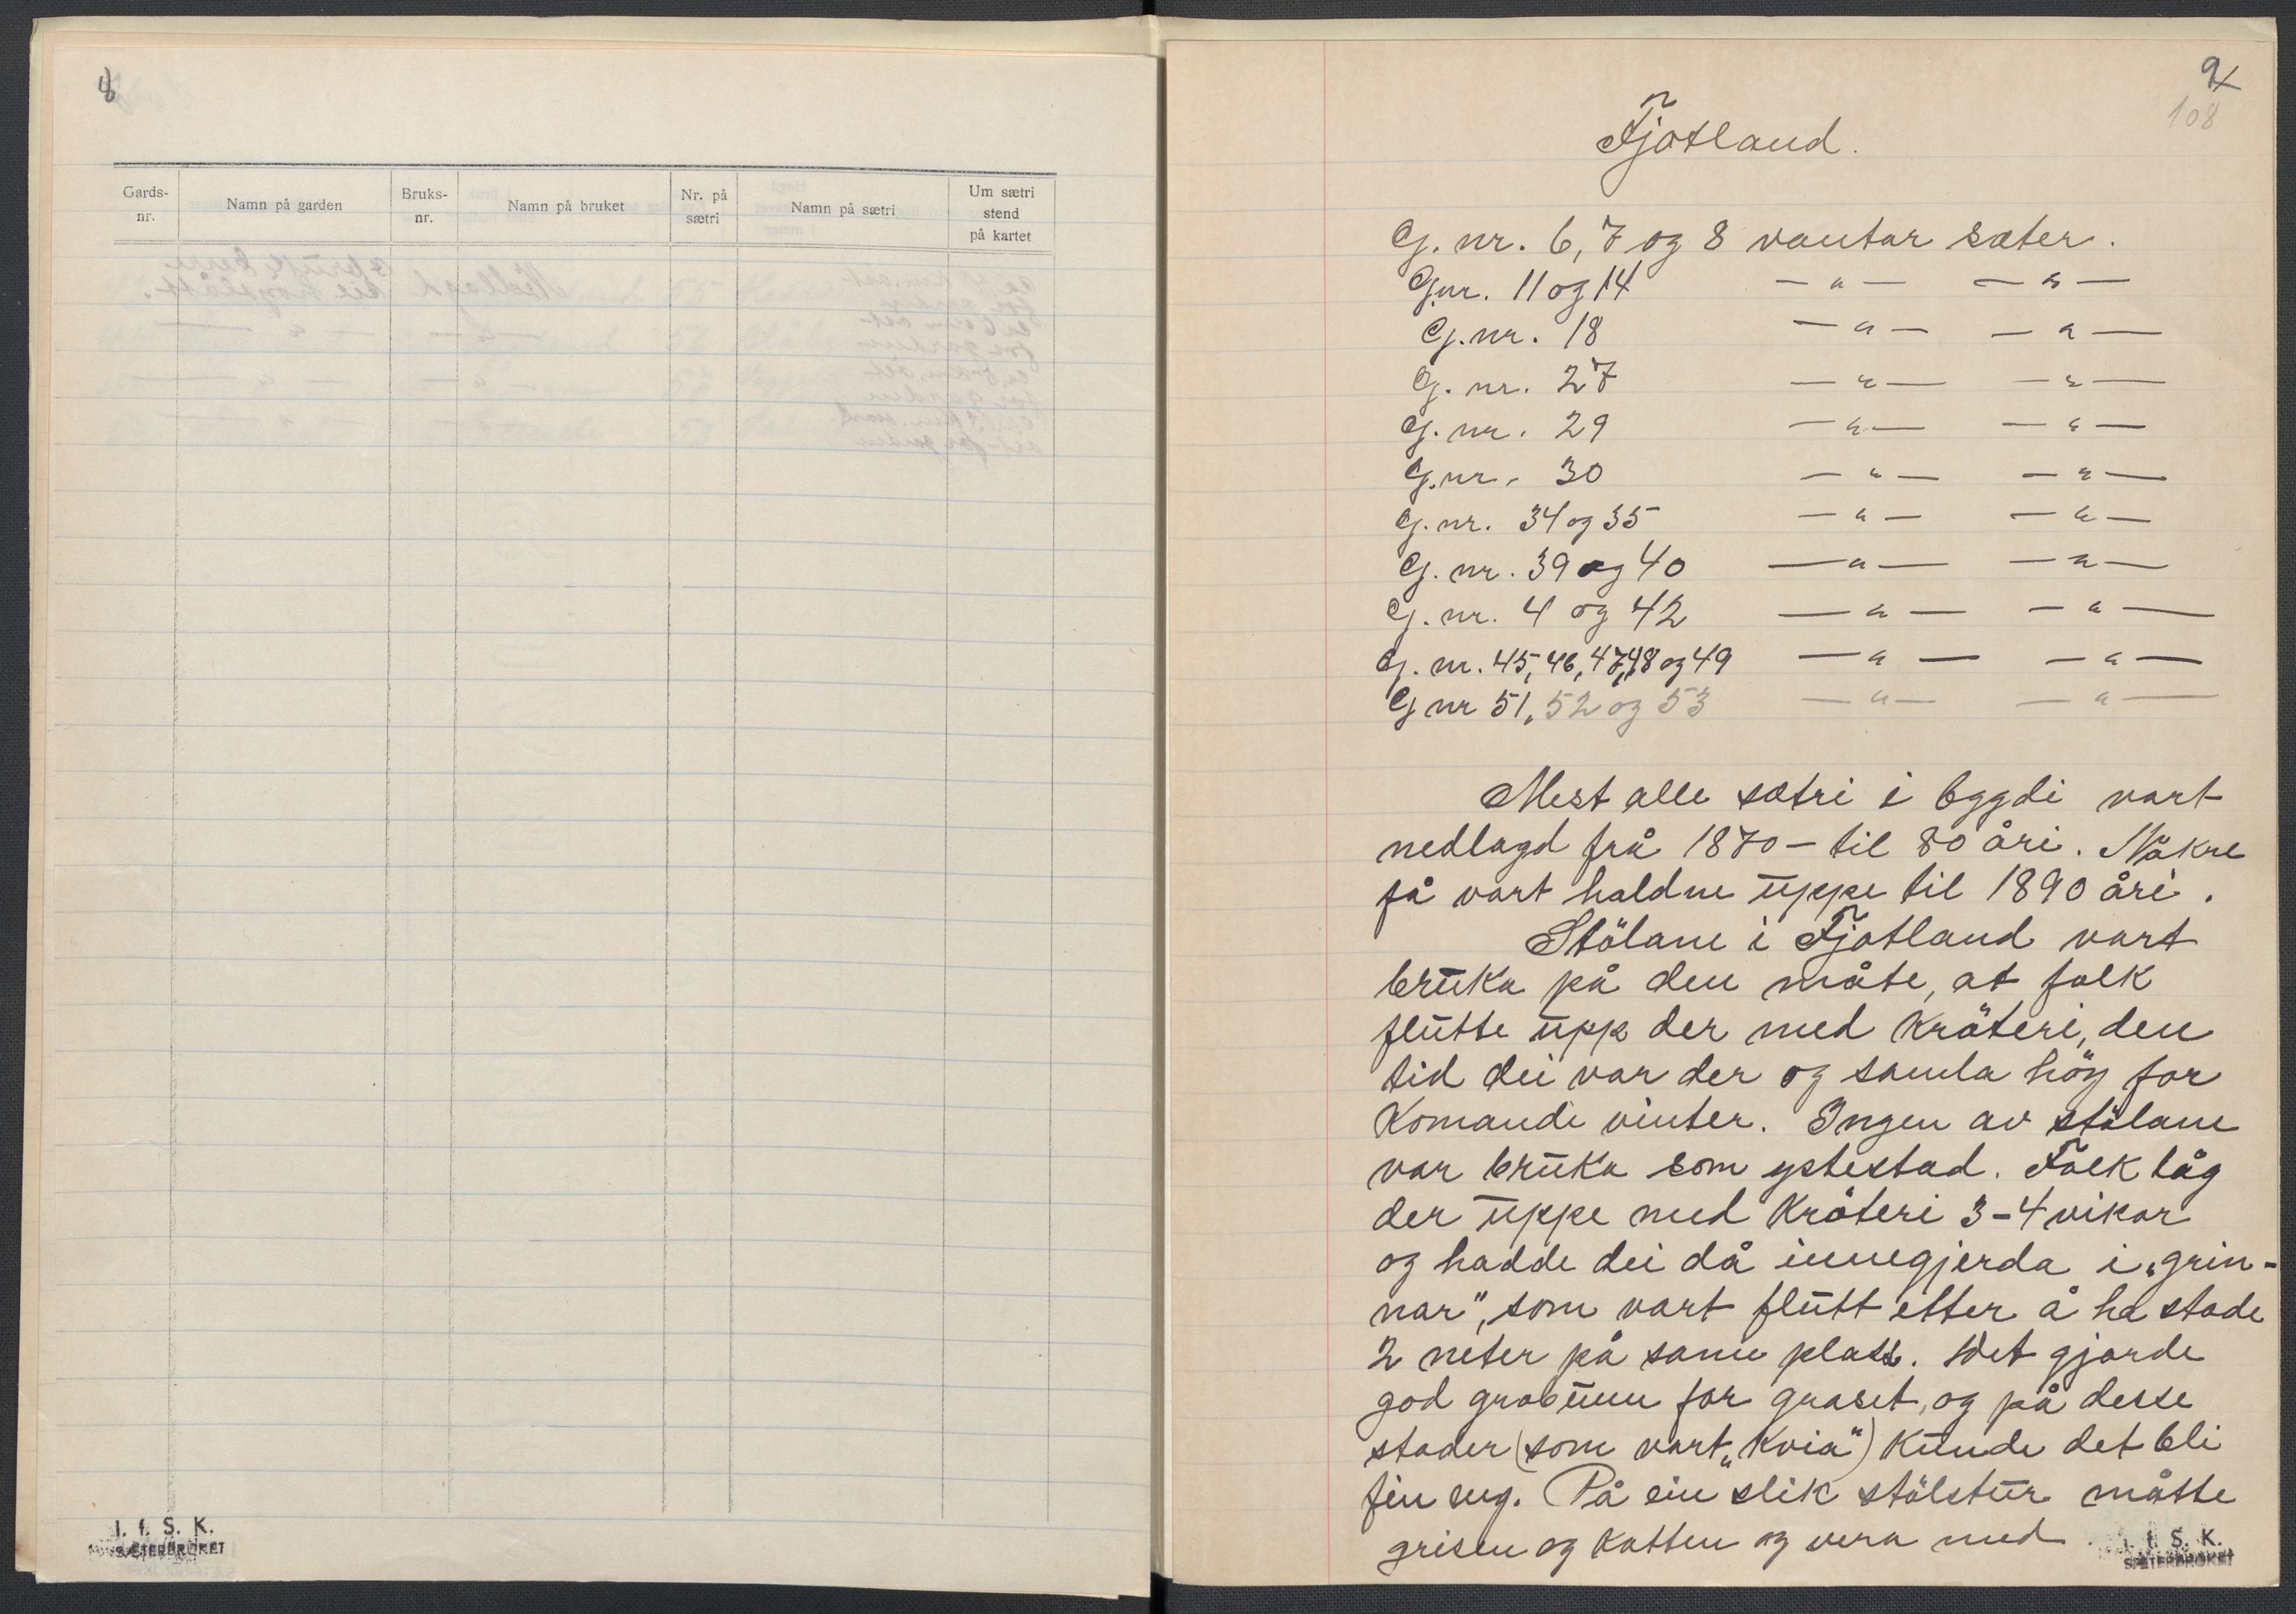 8
Gards-nr.	Namn på garden	Bruks-nr.	Namn på bruket	Nr. på sætri	Namn på sætri	Um sætri stend på kartet
I. f. S. K.
SÆTERBRUKET
9
108
Fjotland.
G. nr. 6, 7 og 8 vantar sæter.
G.nr. 11 og 14 —„— —„—
G. nr. 18 —„— —„—
G. nr. 27 —„— —„—
G. nr. 29 —„— —„—
G. nr. 30 —„— —„—
G. nr. 34 og 35 —„— —„—
G. nr. 39 og 40 —„— —„—
G. nr. 41 og 42 —„— —„—
G. nr. 45, 46, 47, 48 og 49 —„— —„—
G nr 51, 52 og 53 —„— —„—
Mest alle sætri i bygdi vart
nedlagd frå 1870 – til 80 åri. Nåkre
få vart haldne uppe til 1890 åri.
Stölane i Fjotland vart
bruka på den måte, at folk
flutte upp der med kröteri, den
tid dei var der og samla höy for
komande vinter. Ingen av stölane
var bruka som ystestad. Folk låg
der uppe med kröteri 3–4 vikar
og hadde dei då innegjerda i „grin-
nar", som vart flutt etter å ha stade
2 neter på same plass. Det gjorde
god grobunn for graset, og på desse
stader (som vart „kvia") kunde det bli
fin eng. På ein slik stölstur måtte
grisen og katten og vera med
I. f. S. K.
SÆTERBRUKET